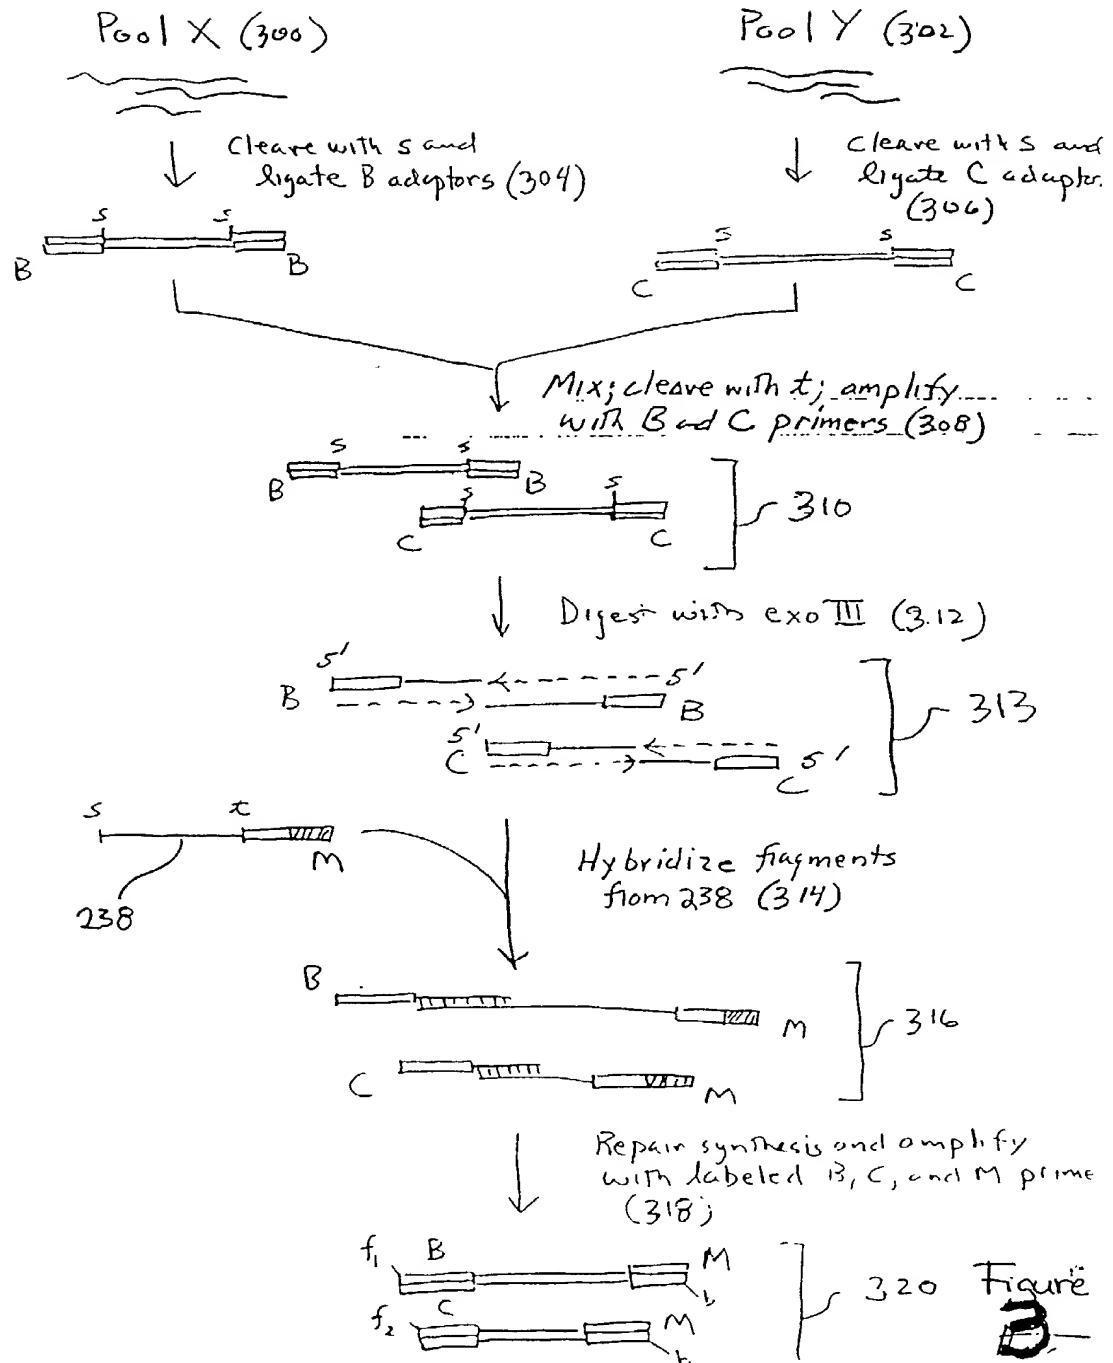 Pool X (300)
Pool Y (302)
Cleave with s and
ligate B adaptors (304)
Cleave with s and
ligate C adaptor.
(306)
s s
B B
s s
C C
Mix; cleave with t; amplify
with B ad C primers (308)
s s
B B
s s
C C
310
Digest with exo III (312)
5' 5'
B B
5'
C C 5'
313
s t
M
238
Hybridize fragments
from 238 (314)
B
M
C
M
316
Repair synthesis and amplify
with labeled B, C, and M prime
(318)
f1 B M
b
C
f2 M
320
Figure
3